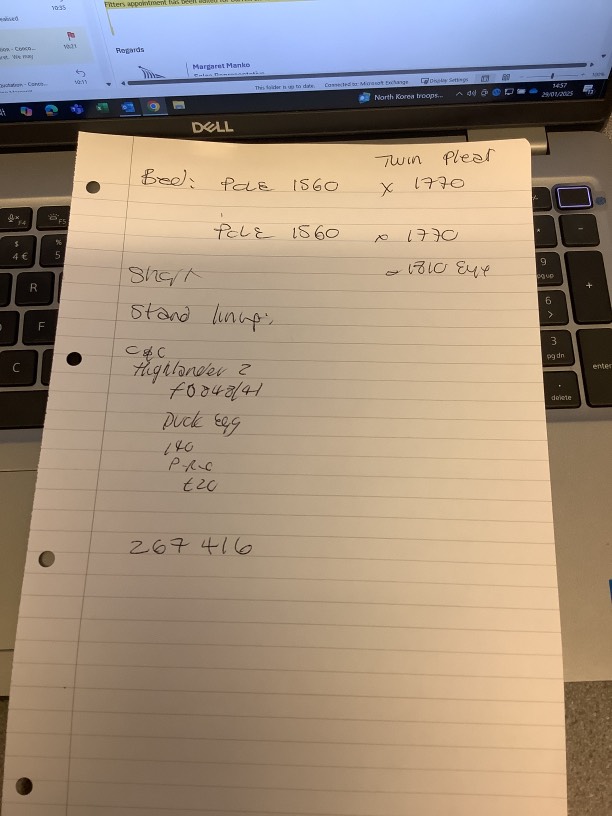 10:35
Fitters appointment has been
10:21
10:11
Regards
Margaret Manko
This folder is up to date.
Connected to: Microsoft Exchange
Display Settings
North Korea troops...
14:57
29/01/2025
DELL
Twin Pleat
Bed: Pole 1560 x 1770
Pole 1560 x 1770
Short - 1810 Eye
Stand lining:
C&C
Highlander 2
F0848/41
Duck Egg
140
P-R-C
£20
267 416
F4
F5
$
4 €
%
5
R
F
C
9
pg up
6
>
3
pg dn
.
delete
-
+
enter